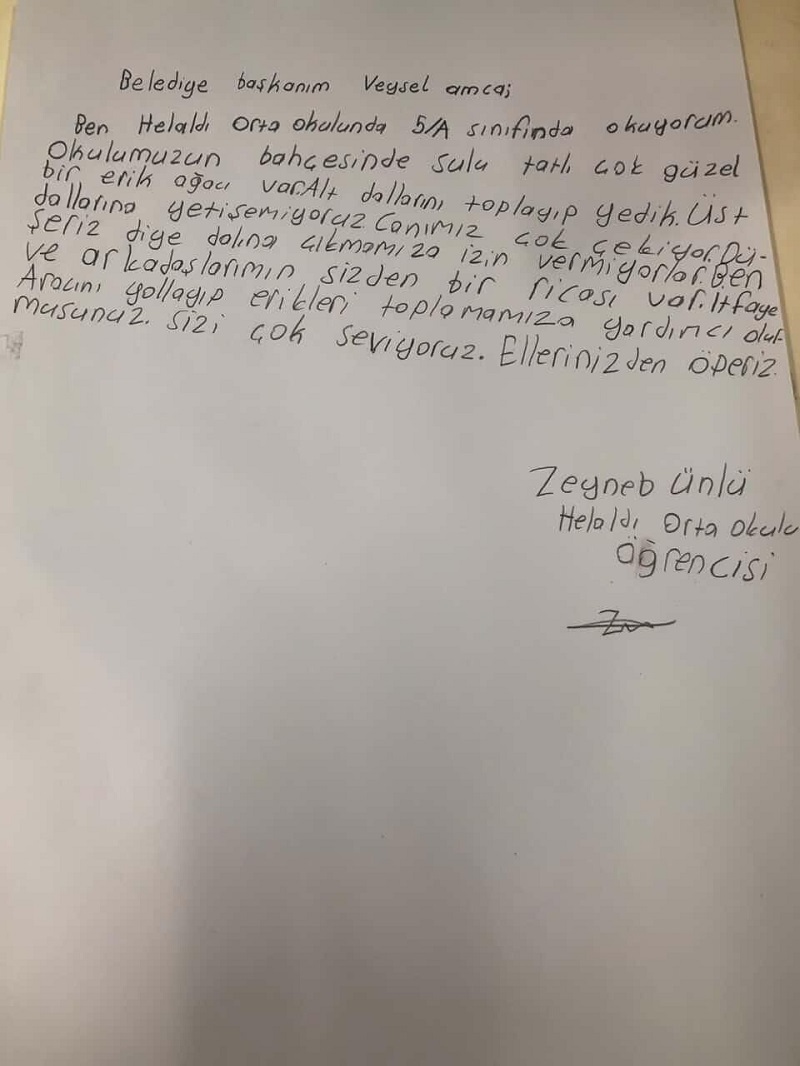 Belediye başkanım Veysel amcaj
Ben Helaldı Orta okulunda 5/A sınıfında okuyorum.
Okulumuzun bahçesinde sulu tatlı çok güzel
bir erik ağacı var.Alt dallarını toplayıp yedik.Üst
dallarına yetişemiyoruz Canımız çok çekiyor.Dü-
şeriz diye dalına çıkmamıza izin vermiyorlar.Ben
ve arkadaşlarımın sizden bir ricası var.İtfaye
Aracını yollayıp erikleri toplamamıza yardımcı olur
musunuz. Sizi çok seviyoruz. Ellerinizden öperiz.
Zeyneb Ünlü
Helaldı Orta okulu
Öğrencisi